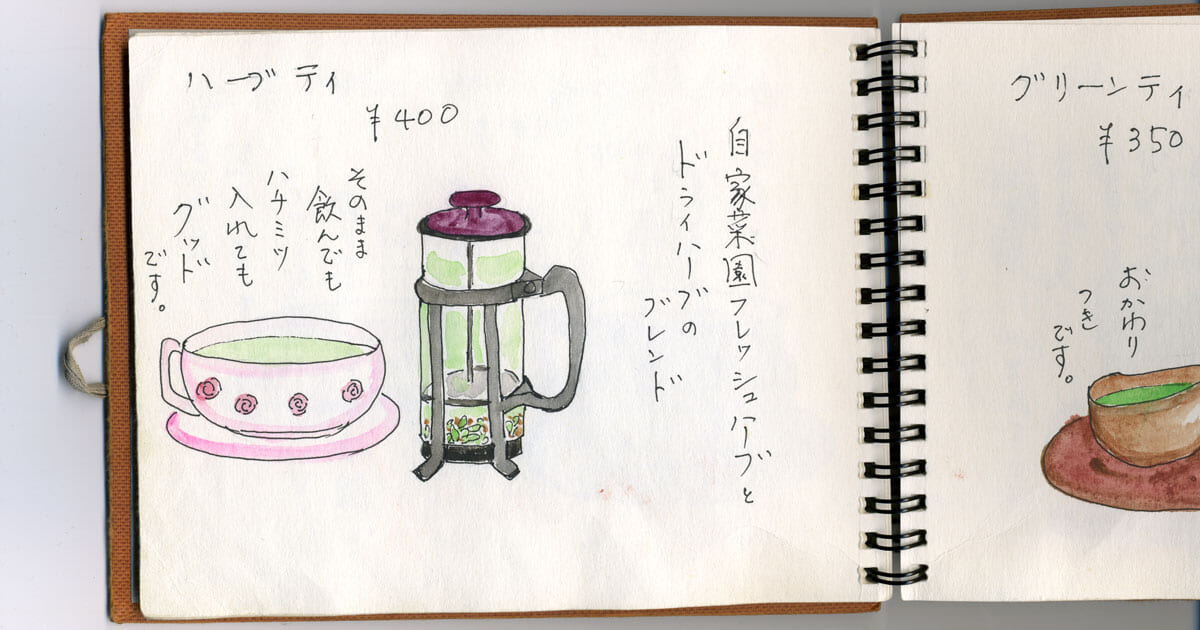 ハーブティ
¥400
自家菜園フレッシュハーブと
ドライハーブの
ブレンド
そのまま
飲んでも
ハチミツ
入れても
グッド
です。
グリーンティ
¥350
おかわり
つき
です。